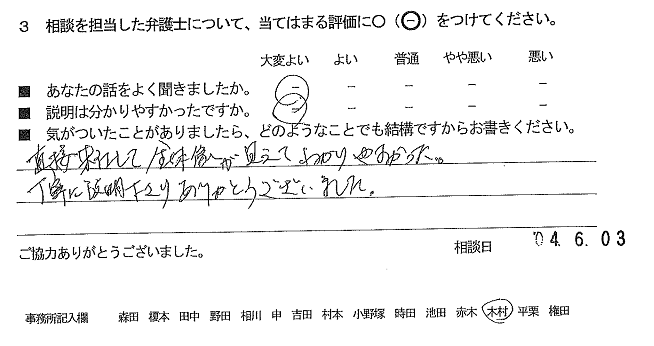 3 相談を担当した弁護士について、当てはまる評価に○（㊀）をつけてください。
大変よい よい 普通 やや悪い 悪い
■ あなたの話をよく聞きましたか。 － － － － －
■ 説明は分かりやすかったですか。 － － － － －
■ 気がついたことがありましたら、どのようなことでも結構ですからお書きください。
直接来社して全体像が見えてわかりやすかった。
丁寧に説明下さりありがとうございました。
ご協力ありがとうございました。 相談日 '04.6.03
事務所記入欄 森田 榎本 田中 野田 相川 申 吉田 村本 小野塚 時田 池田 赤木 木村 平栗 権田